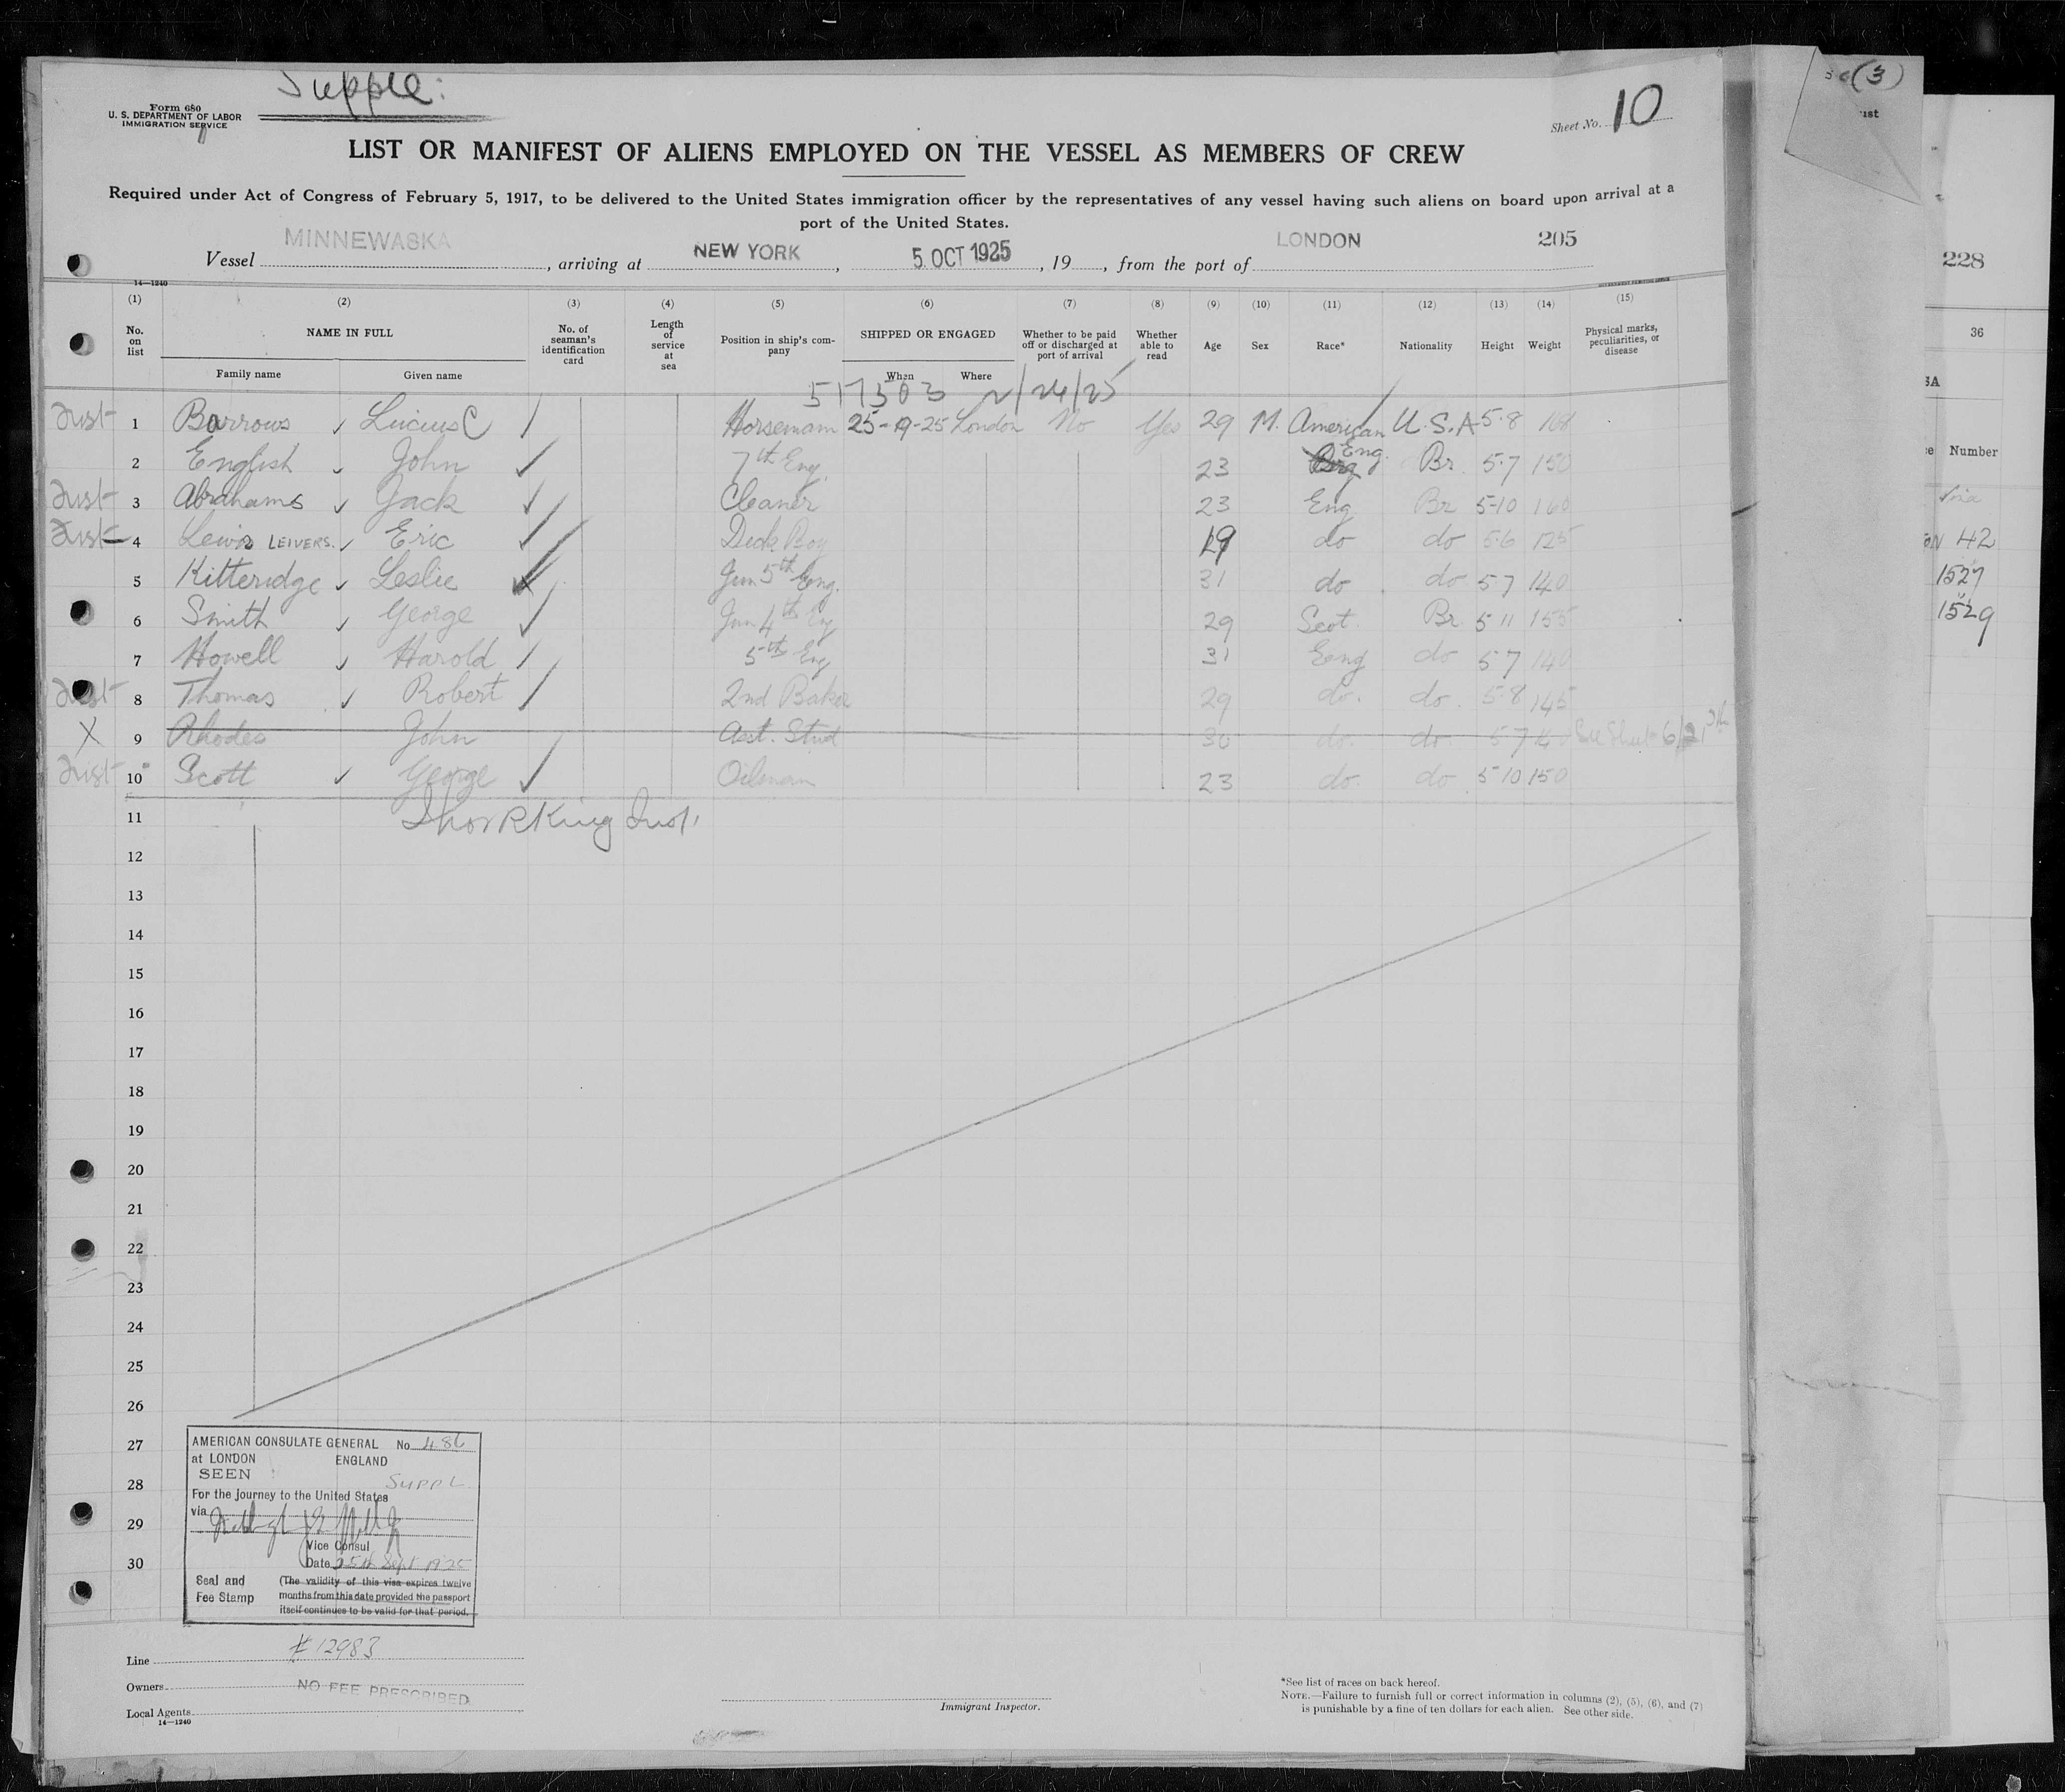 Supple:
Form 680
U. S. DEPARTMENT OF LABOR
IMMIGRATION SERVICE
Sheet No. 10
LIST OR MANIFEST OF ALIENS EMPLOYED ON THE VESSEL AS MEMBERS OF CREW
Required under Act of Congress of February 5, 1917, to be delivered to the United States immigration officer by the representatives of any vessel having such aliens on board upon arrival at a
port of the United States.
Vessel MINNEWASKA, arriving at NEW YORK, 5 OCT 1925, 19, from the port of LONDON 205
14—1240
(1) (2) (3) (4) (5) (6) (7) (8) (9) (10) (11) (12) (13) (14) (15)
No. on list NAME IN FULL No. of seaman's identification card Length of service at sea Position in ship's company SHIPPED OR ENGAGED Whether to be paid off or discharged at port of arrival Whether able to read Age Sex Race* Nationality Height Weight Physical marks, peculiarities, or disease
Family name Given name When Where
517503 2/24/25
1 Barrows Lucius C Horseman 25-9-25 London No Yes 29 M. American U.S.A 5-8 168
2 English John 7th Eng. 23 Eng. Br. 5-7 150
3 Abrahams Jack Cleaner 23 Eng Br 5-10 160
4 Lewis LEIVERS. Eric Deck Boy 19 do do 5-6 125
5 Kitteridge Leslie Jun 5th Eng. 31 do do 5 7 140
6 Smith George Jun 4th Eng 29 Scot. Br 5 11 155
7 Howell Harold 5th Eng 31 Eng do 5 7 140
8 Thomas Robert 2nd Baker 29 do. do. 5-8 145
X 9 Rhodes John Asst. Stud 30 do. do. 5 7 See Sheet 6/21
10 Scott George Oilman 23 do do 5 10 150
11
12
13
14
15
16
17
18
19
20
21
22
23
24
25
26
27
28
29
30
AMERICAN CONSULATE GENERAL No. 486
at LONDON ENGLAND
SEEN
SUPPL
For the journey to the United States
via
Vice Consul
Date 25th Sept 1925
Seal and Fee Stamp
(The validity of this visa expires twelve
months from this date provided the passport
itself continues to be valid for that period.
Line # 12983
Owners NO FEE PRESCRIBED
Local Agents
14—1240
Immigrant Inspector.
*See list of races on back hereof.
NOTE.—Failure to furnish full or correct information in columns (2), (5), (6), and (7)
is punishable by a fine of ten dollars for each alien. See other side.
(3)
228
36
Number
42
1527
1529